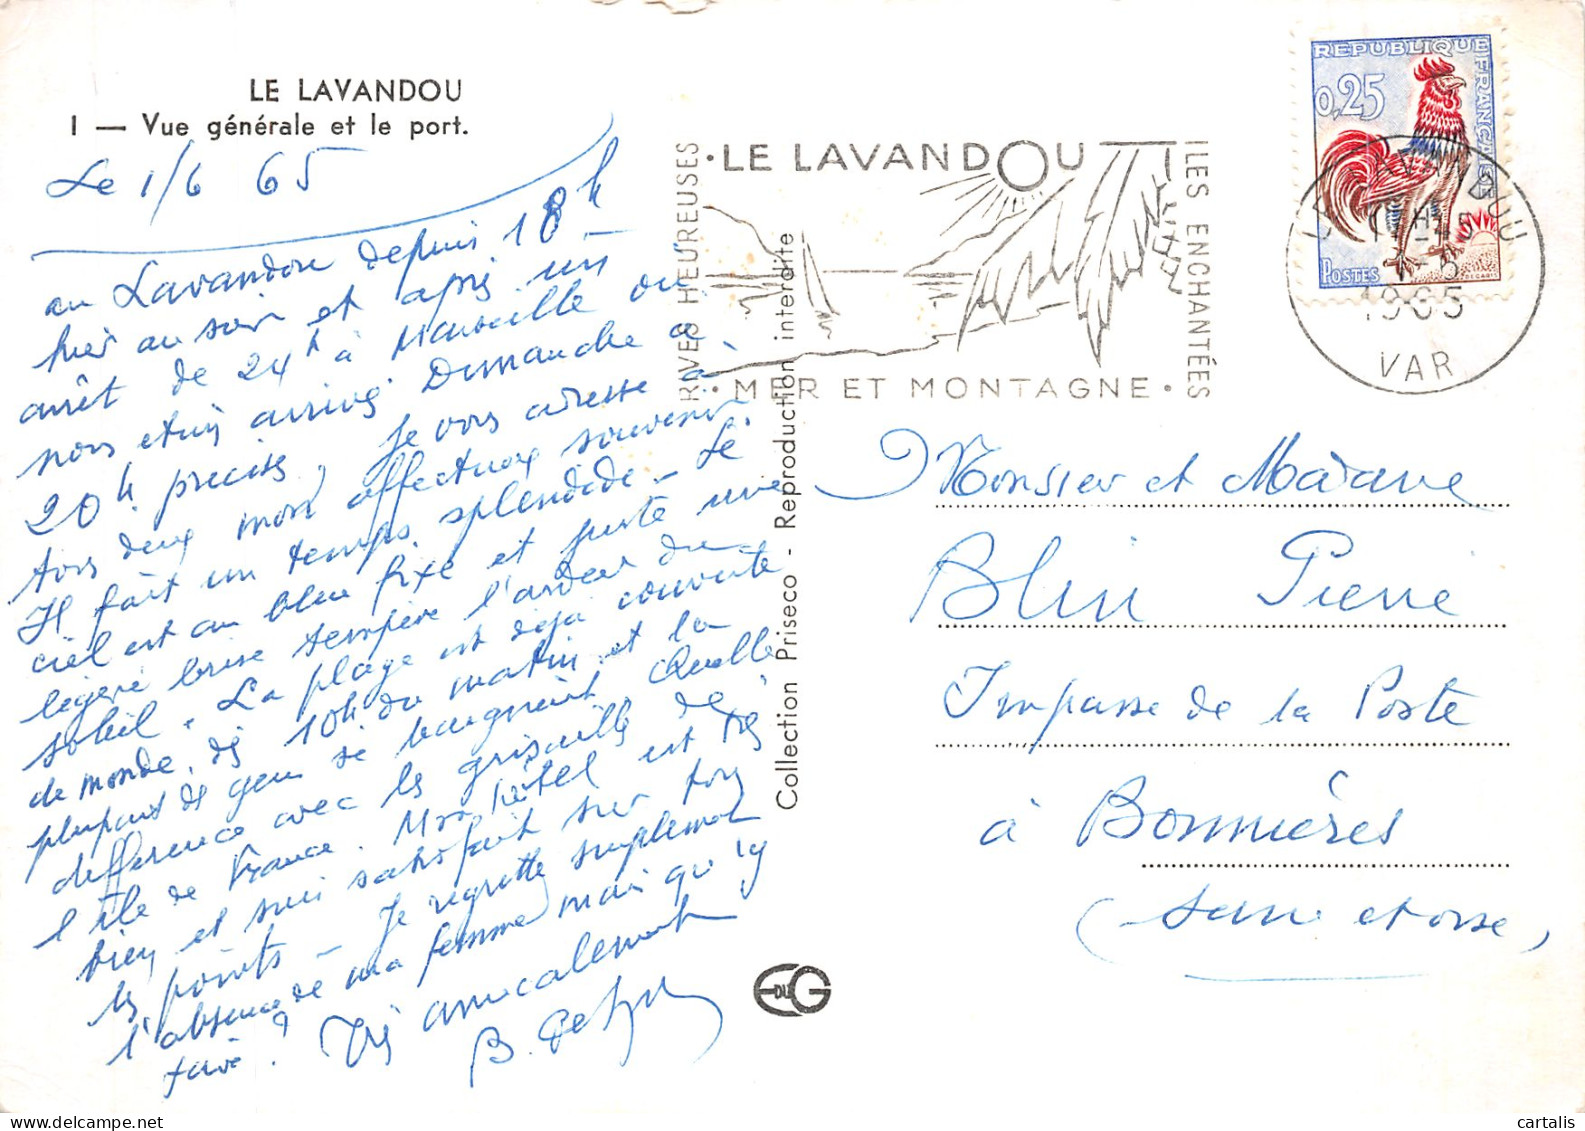 LE LAVANDOU
I — Vue générale et le port.
Le 1/6 65
au Lavandou depuis 18h
hier au soir et après un
arrêt de 24h à Marseille où
nous étions arrivés Dimanche à
20h précises, je vous adresse à
tous deux mon affectueux souvenir.
Il fait un temps splendide - Le
ciel est au bleu fixe et juste une
légère brise tempère l'ardeur du
soleil. La plage est déjà couverte
de monde, dès 10h du matin et la
plupart de gens se baignent. Quelle
différence avec la grisaille de
l'Île de France. Mon hôtel est très
bien et suis satisfait sur tous
les points - Je regrette simplement
l'absence de ma femme mais qu'y
faire? Très amicalement
B.
Collection Priseco - Reproduction interdite
E DU G
RIVES HEUREUSES
• LE LAVANDOU
ILES ENCHANTÉES
• MER ET MONTAGNE •
REPUBLIQUE FRANÇAISE
0,25
POSTES
DECARIS
LE LAVANDOU
1965
VAR
Monsieur et Madame
Blin Pierre
Impasse de la Poste
à Bonnières
(Seine et oise)
cartalis